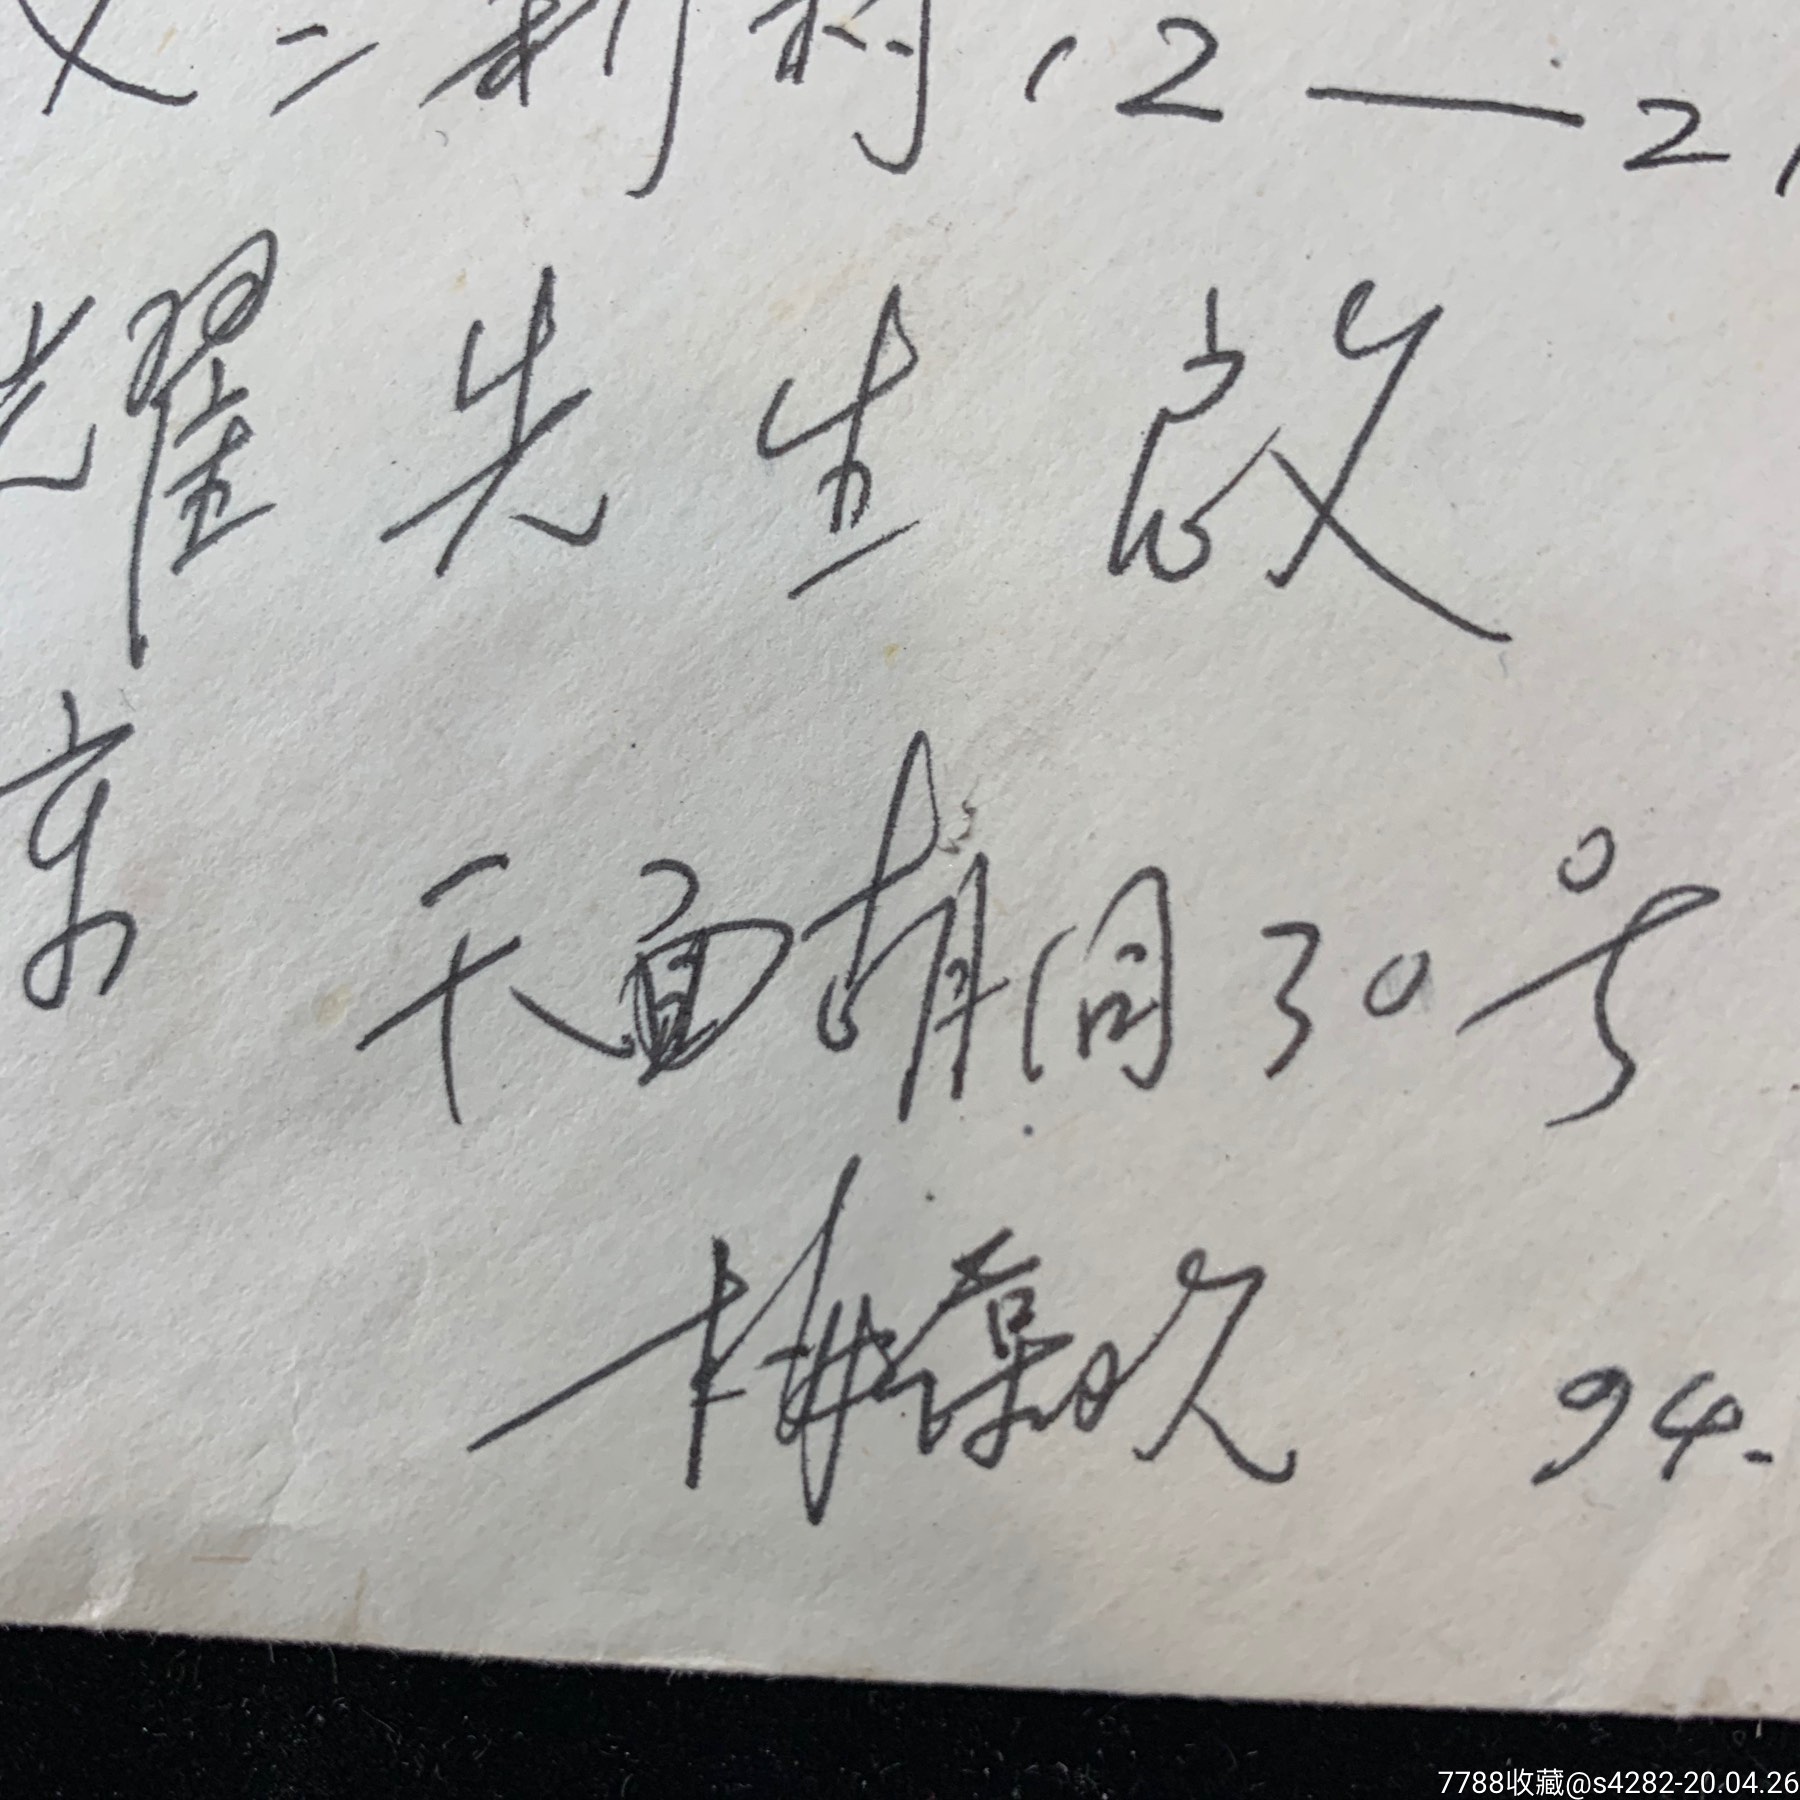 二新村12—2
光耀先生啟
京
干面胡同30号
梅葆玖 94.
7788收藏@s4282-20.04.26